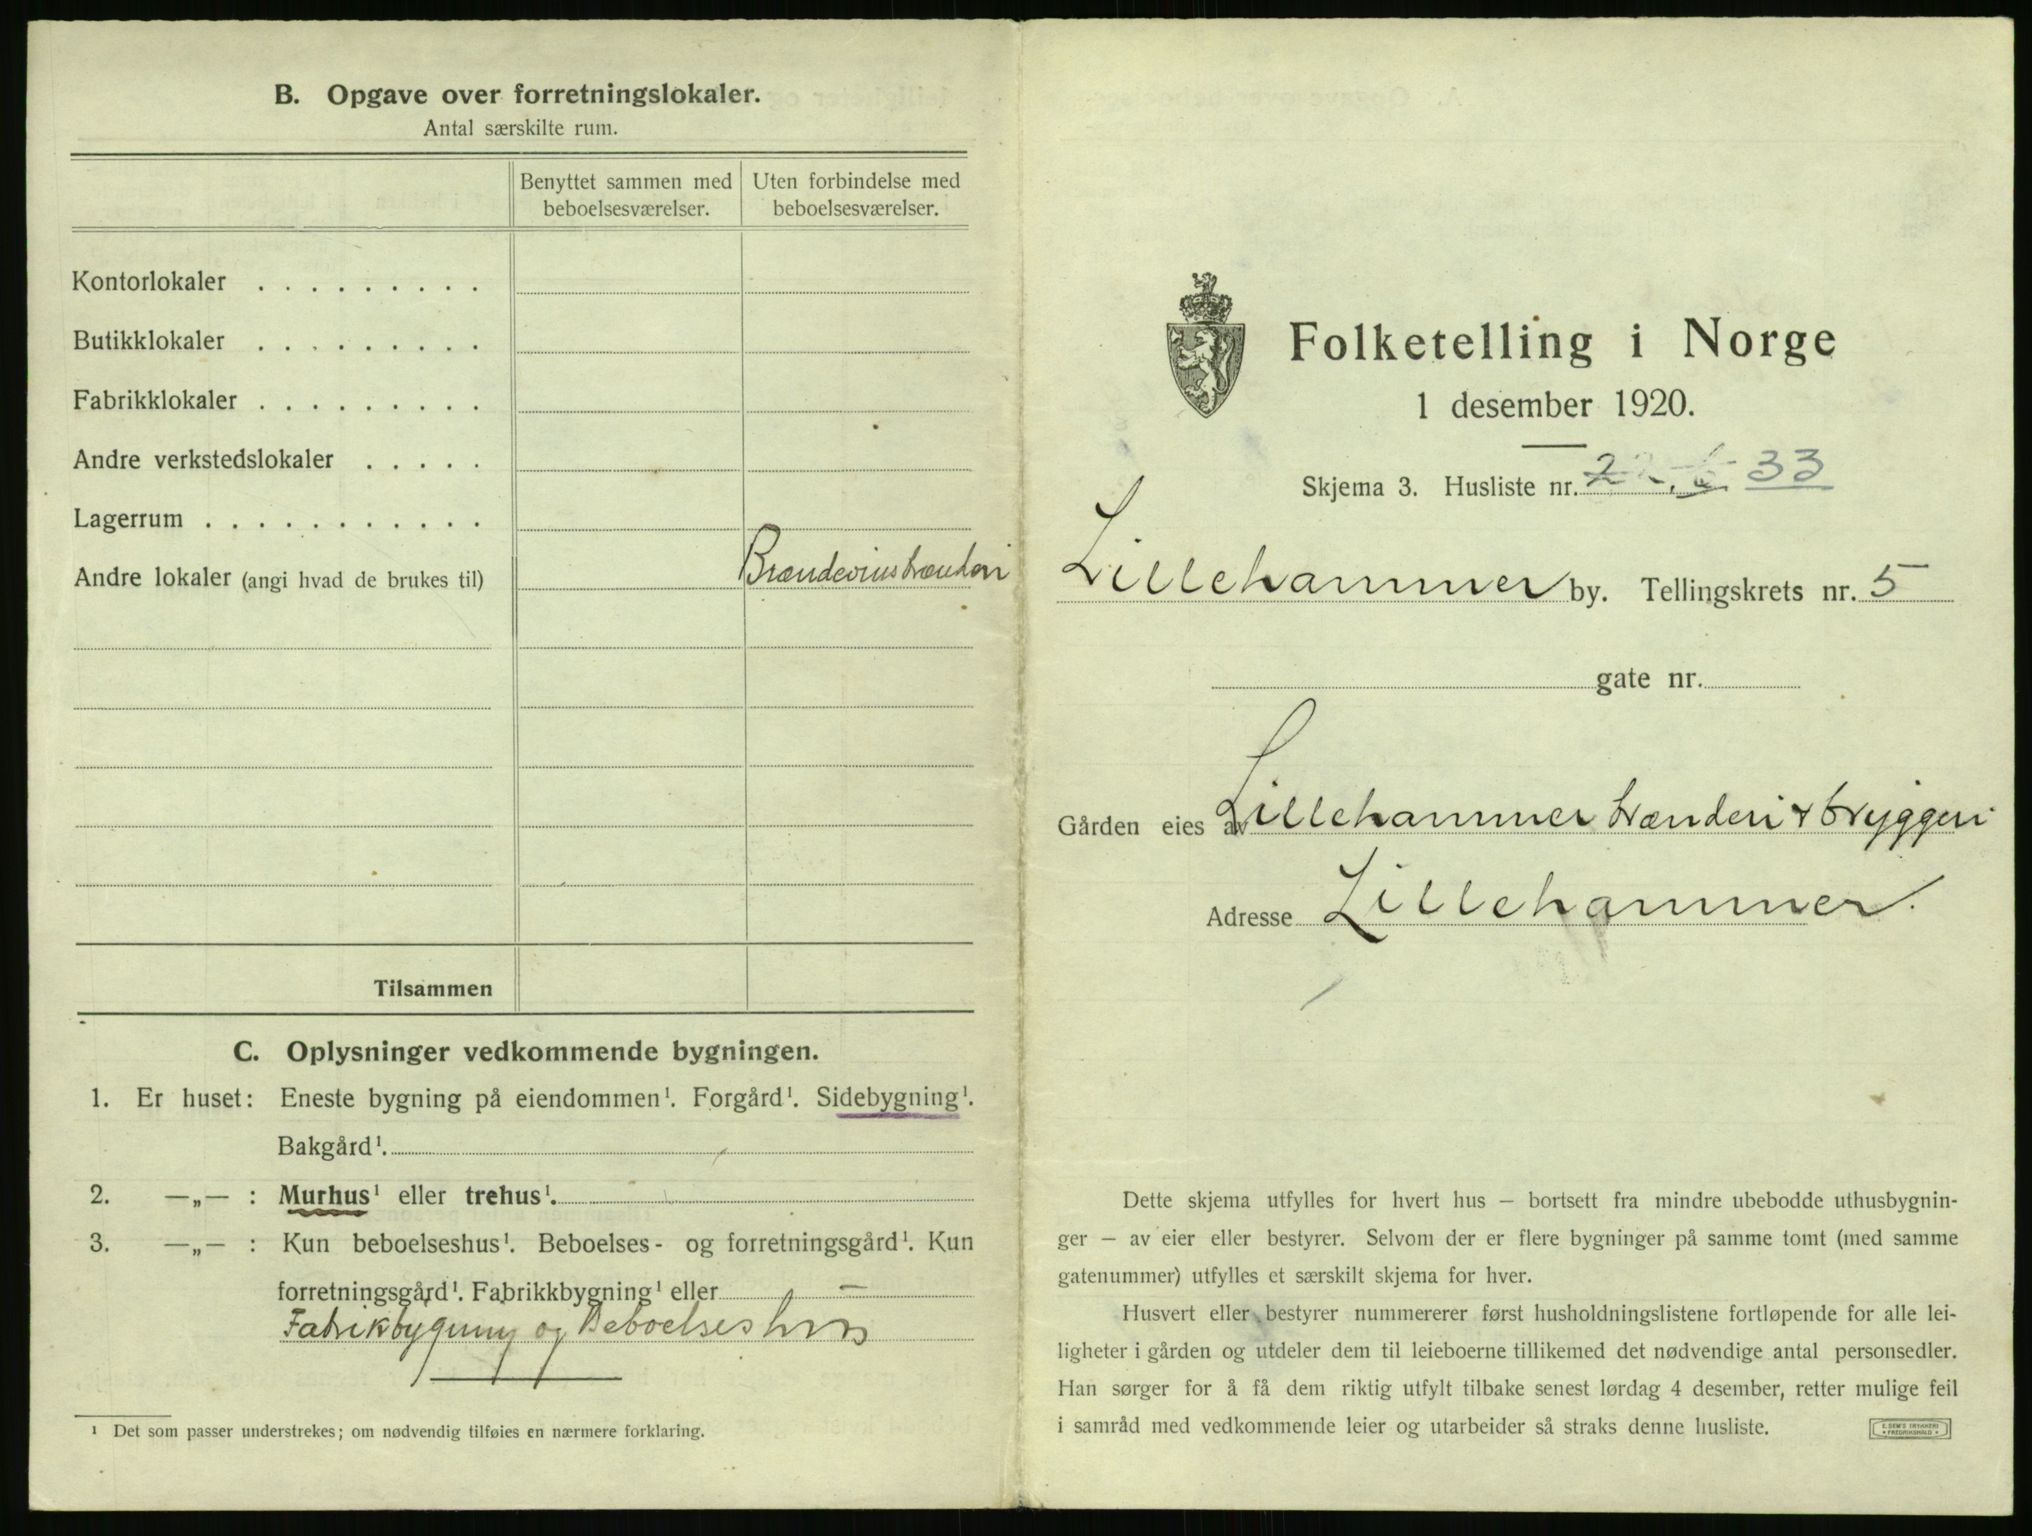 B. Opgave over forretningslokaler.
Antal særskilte rum.
Benyttet sammen med beboelsesværelser.
Uten forbindelse med beboelsesværelser.
Kontorlokaler . . . . . . . . .
Butikklokaler . . . . . . . . .
Fabrikklokaler . . . . . . . . .
Andre verkstedslokaler . . . . .
Lagerrum . . . . . . . . . . . .
Andre lokaler (angi hvad de brukes til) Brændevinsbrænderi
Tilsammen
C. Oplysninger vedkommende bygningen.
1. Er huset: Eneste bygning på eiendommen¹. Forgård¹. Sidebygning¹.
Bakgård¹.
2. —„— : Murhus¹ eller trehus¹.
3. —„— : Kun beboelseshus¹. Beboelses- og forretningsgård¹. Kun
forretningsgård¹. Fabrikkbygning¹ eller —
Fabrikbygning og Beboelseshus
¹ Det som passer understrekes; om nødvendig tilføies en nærmere forklaring.
Folketelling i Norge
1 desember 1920.
Skjema 3. Husliste nr. 33
Lillehammer by. Tellingskrets nr. 5
gate nr.
Gården eies av Lillehammer brænderi & bryggeri
Adresse Lillehammer.
Dette skjema utfylles for hvert hus — bortsett fra mindre ubebodde uthusbygnin-
ger — av eier eller bestyrer. Selvom der er flere bygninger på samme tomt (med samme
gatenummer) utfylles et særskilt skjema for hver.
Husvert eller bestyrer nummererer først husholdningslistene fortløpende for alle lei-
ligheter i gården og utdeler dem til leieboerne tillikemed det nødvendige antal personsedler.
Han sørger for å få dem riktig utfylt tilbake senest lørdag 4 desember, retter mulige feil
i samråd med vedkommende leier og utarbeider så straks denne husliste.
E. SEM'S TRYKKERI
• FREDRIKSHALD •